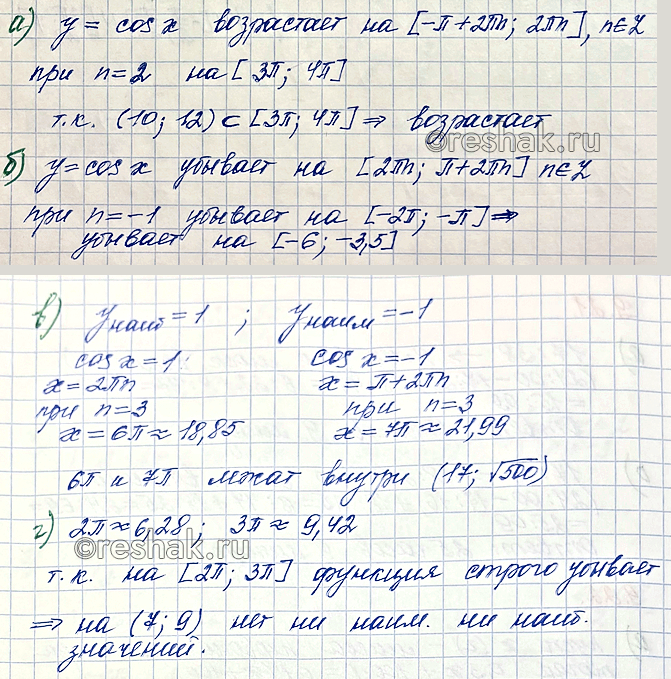 а) y = cos x возрастает на [-π + 2πn; 2πn], n∈Z
при n = 2 на [3π; 4π]
т.к. (10; 12) ⊂ [3π; 4π] ⇒ возрастает
©reshak.ru
б) y = cos x убывает на [2πn; π + 2πn] n∈Z
при n = -1 убывает на [-2π; -π] ⇒
убывает на [-6; -3,5]
в) y наиб = 1 ; y наим = -1
cos x = 1; cos x = -1
x = 2πn x = π + 2πn
при n = 3 при n = 3
x = 6π ≈ 18,85 x = 7π ≈ 21,99
6π и 7π лежат внутри (17; √500)
г) 2π ≈ 6,28; 3π ≈ 9,42
©reshak.ru
т.к. на [2π; 3π] функция строго убывает
⇒ на (7; 9) нет ни наим. ни наиб.
значений.